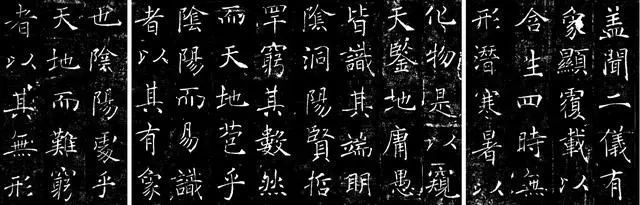 盖聞二儀有
象顯覆載以
含生四時無
形潛寒暑以
化物是以窺
天鑒地庸愚
皆識其端明
陰洞陽賢哲
罕窮其數然
而天地苞乎
陰陽而易識
者以其有象
也陰陽處乎
天地而難窮
者以其無形